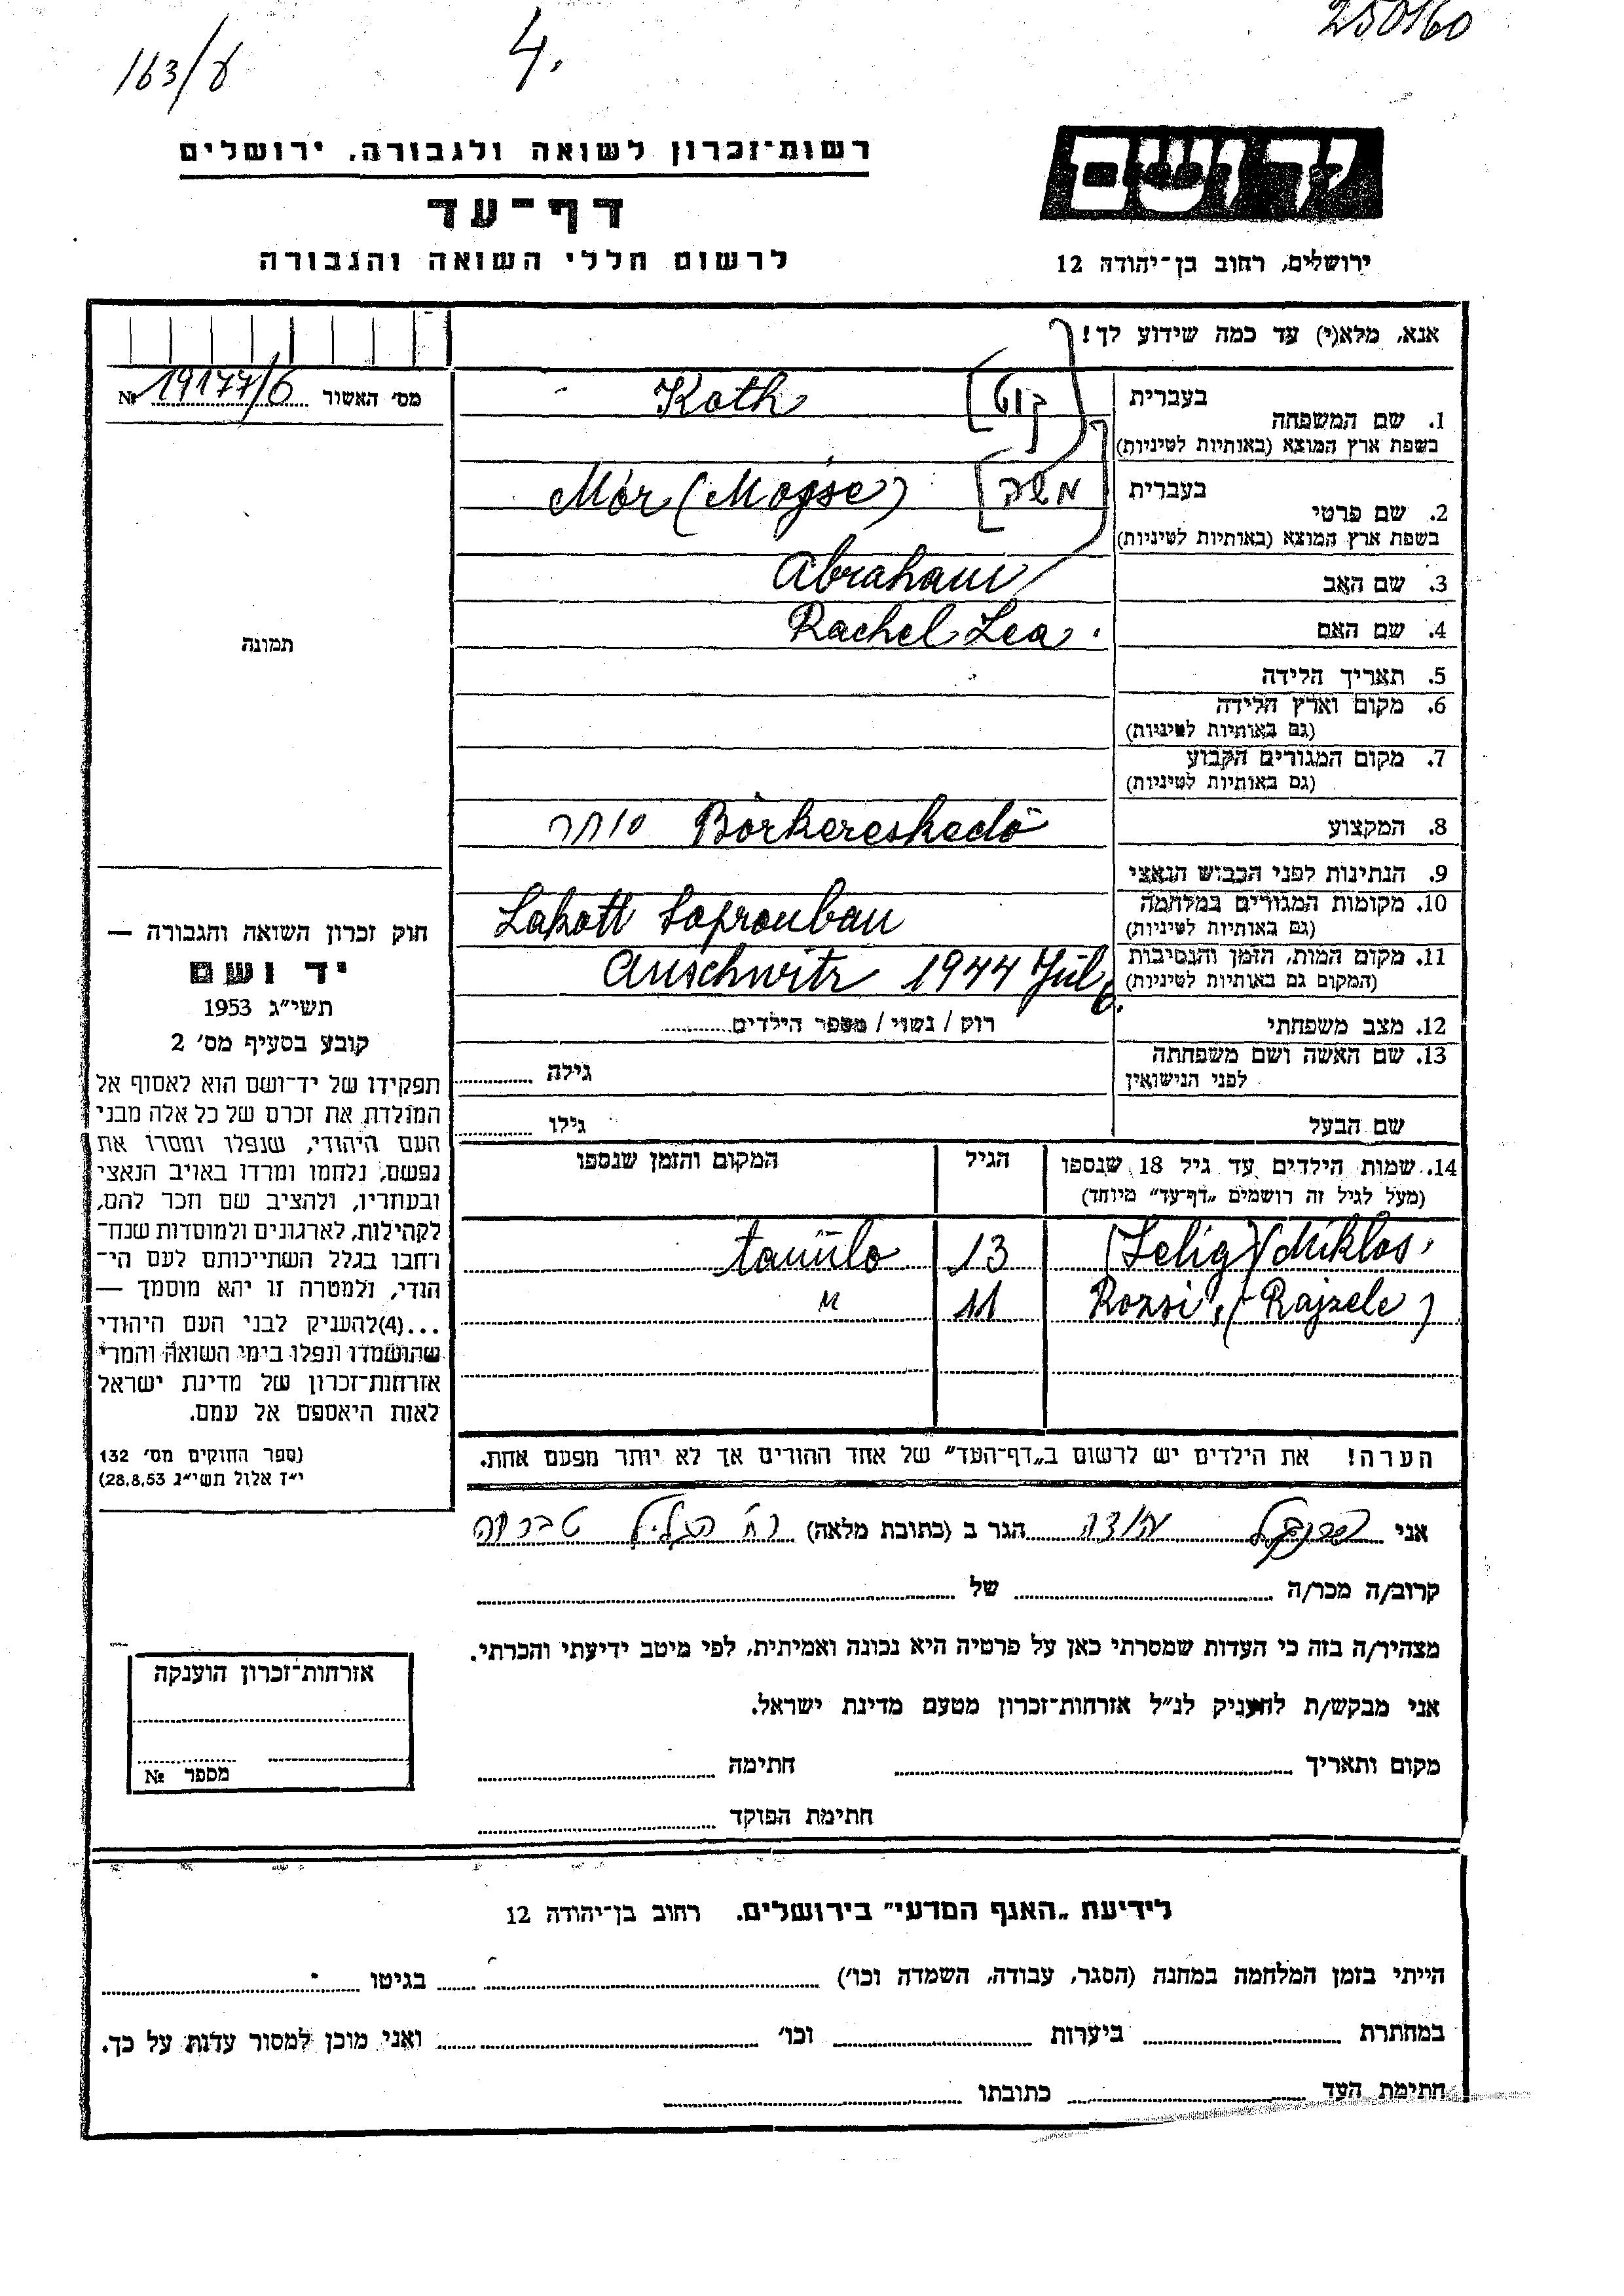 163/ע 4. 250160
רשות־זכרון לשואה ולגבורה, ירושלים
יד ושם
דף־עד
לרשום חללי השואה והגבורה
ירושלים, רחוב בן־יהודה 12
אנא, מלא(י) עד כמה שידוע לך!
מס׳ האשור № 19177/6
1. שם המשפחה
בעברית
[קוט] Koth
בשפת ארץ המוצא (באותיות לטיניות)
2. שם פרטי
בעברית
[משה] Mór (Mojse)
בשפת ארץ המוצא (באותיות לטיניות)
3. שם האב Abraham
4. שם האם Rachel Lea.
תמונה
5. תאריך הלידה
6. מקום וארץ הלידה
(גם באותיות לטיניות)
7. מקום המגורים הקבוע
(גם באותיות לטיניות)
8. המקצוע Börkereskedő סוחר
9. הנתינות לפני הכבוש הנאצי
10. מקומות המגורים במלחמה
(גם באותיות לטיניות)
Lakott Sopronban
11. מקום המות, הזמן והנסיבות
(המקום גם באותיות לטיניות)
Auschwitz 1944 Jul
12. מצב משפחתי רוק / נשוי / מספר הילדים
13. שם האשה ושם משפחתה
לפני הנישואין
גילה
שם הבעל גילו
14. שמות הילדים עד גיל 18 שנספו
(מעל לגיל זה רושמים „דף־עד״ מיוחד)
הגיל המקום והזמן שנספו
(Selig) Miklos, 13 tanuló
Rozsi, (Rajzele) 11 "
הערה! את הילדים יש לרשום ב„דף־העד״ של אחד ההורים אך לא יותר מפעם אחת.
חוק זכרון השואה והגבורה —
יד ושם
תשי״ג 1953
קובע בסעיף מס׳ 2
תפקידו של יד־ושם הוא לאסוף אל
המולדת את זכרם של כל אלה מבני
העם היהודי, שנפלו ומסרו את
נפשם, נלחמו ומרדו באויב הנאצי
ובעוזריו, ולהציב שם וזכר להם,
לקהילות, לארגונים ולמוסדות שנח־
רחבו בגלל השתייכותם לעם הי־
הודי, ולמטרה זו יהא מוסמך —
...(4)להעניק לבני העם היהודי
שהושמדו ונפלו בימי השואה והמרי
אזרחות־זכרון של מדינת ישראל
לאות היאספם אל עמם.
(ספר החוקים מס׳ 132
י״ז אלול תשי״ג 28.8.53)
אני יהודה הגר ב (כתובת מלאה) רח׳ הגליל טבריה
קרוב/ה מכר/ה של
מצהיר/ה בזה כי העדות שמסרתי כאן על פרטיה היא נכונה ואמיתית, לפי מיטב ידיעתי והכרתי.
אני מבקש/ת להעניק לנ״ל אזרחות־זכרון מטעם מדינת ישראל.
מקום ותאריך חתימה
חתימת הפוקד
אזרחות־זכרון הוענקה
מספר №
לידיעת „האגף המדעי״ בירושלים. רחוב בן־יהודה 12
הייתי בזמן המלחמה במחנה (הסגר, עבודה, השמדה וכו׳) בגיטו
במחתרת ביערות וכו׳ ואני מוכן למסור עדות על כך.
חתימת העד כתובתו